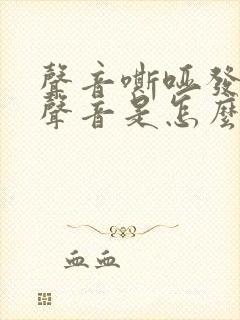 聲音嘶啞發
聲音是怎麼
血血